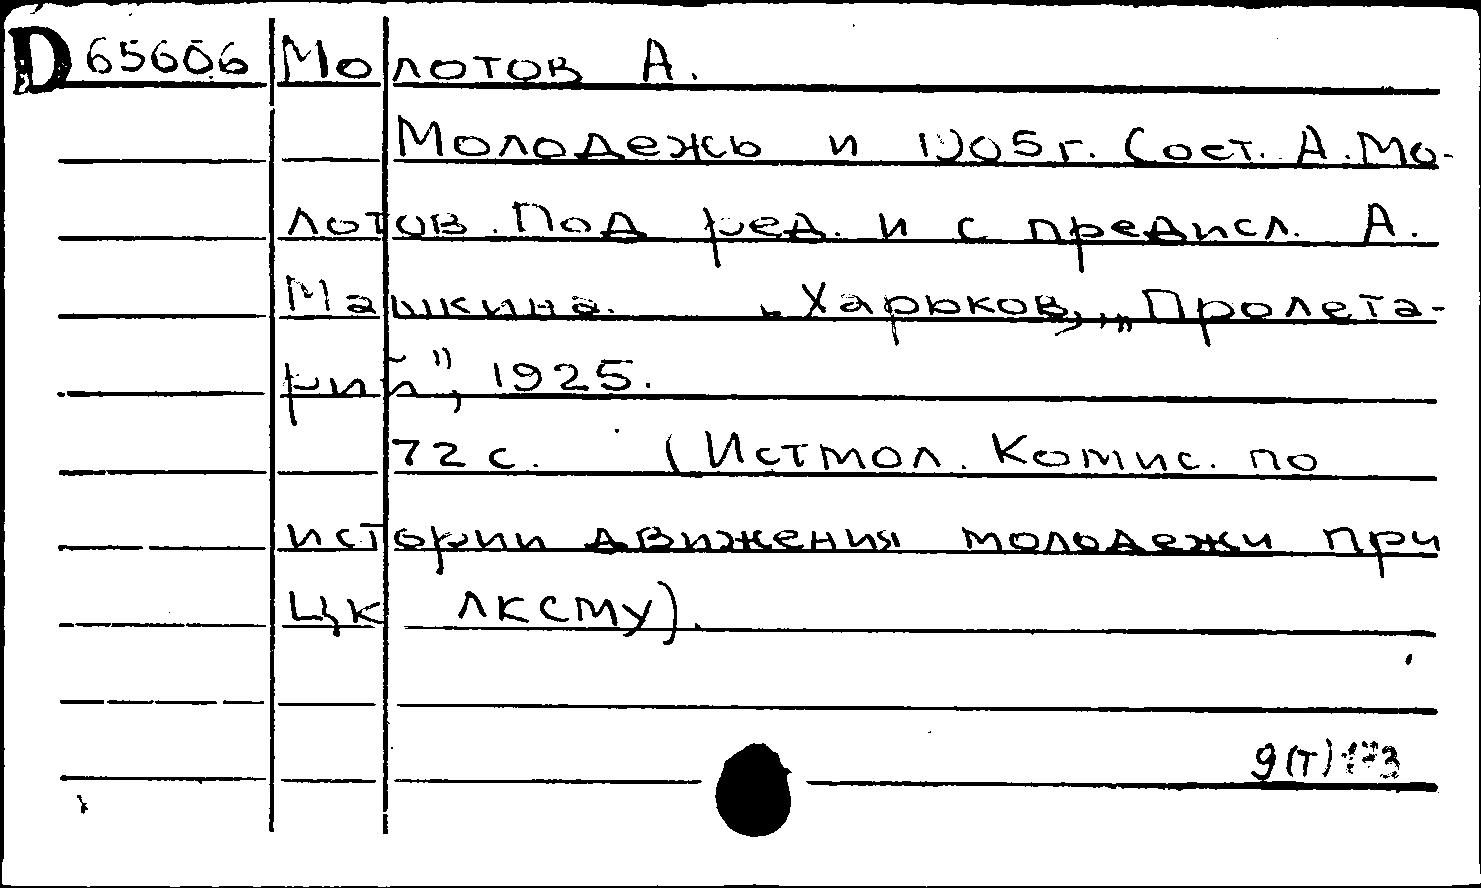 D 65606 Молотов А.
Молодежь и 1905 г. Сост. А. Мо-
лотов. Под ред. и с предисл. А.
Машкина. Харьков, „Пролета-
рий", 1925.
72 с. (Истмол. Комис. по
истории движения молодежи при
ЦК ЛКСМУ).
9(Т)173